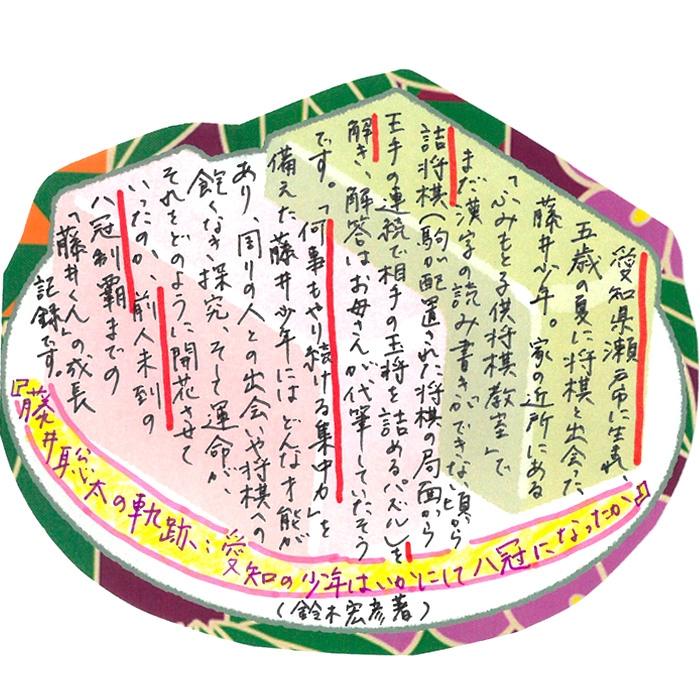 愛知県瀬戸市に生まれ、
五歳の夏に将棋と出会った、
藤井少年。家の近所にある
「ふみもと子供将棋教室」で
まだ漢字の読み書きができない頃から
詰将棋(駒が配置された将棋の局面から
王手の連続で相手の玉将を詰めるパズル)を
解き、解答はお母さんが代筆していたそう
です。「何事もやり続ける集中力」を
備えた藤井少年にはどんな才能が
あり、周りの人との出会いや将棋への
飽くなき探究、そして運命が、
それをどのように開花させて
いったのか、前人未到の
八冠制覇までの
「藤井くん」の成長
記録です。
『藤井聡太の軌跡:愛知の少年はいかにして八冠になったか』
(鈴木宏彦著)